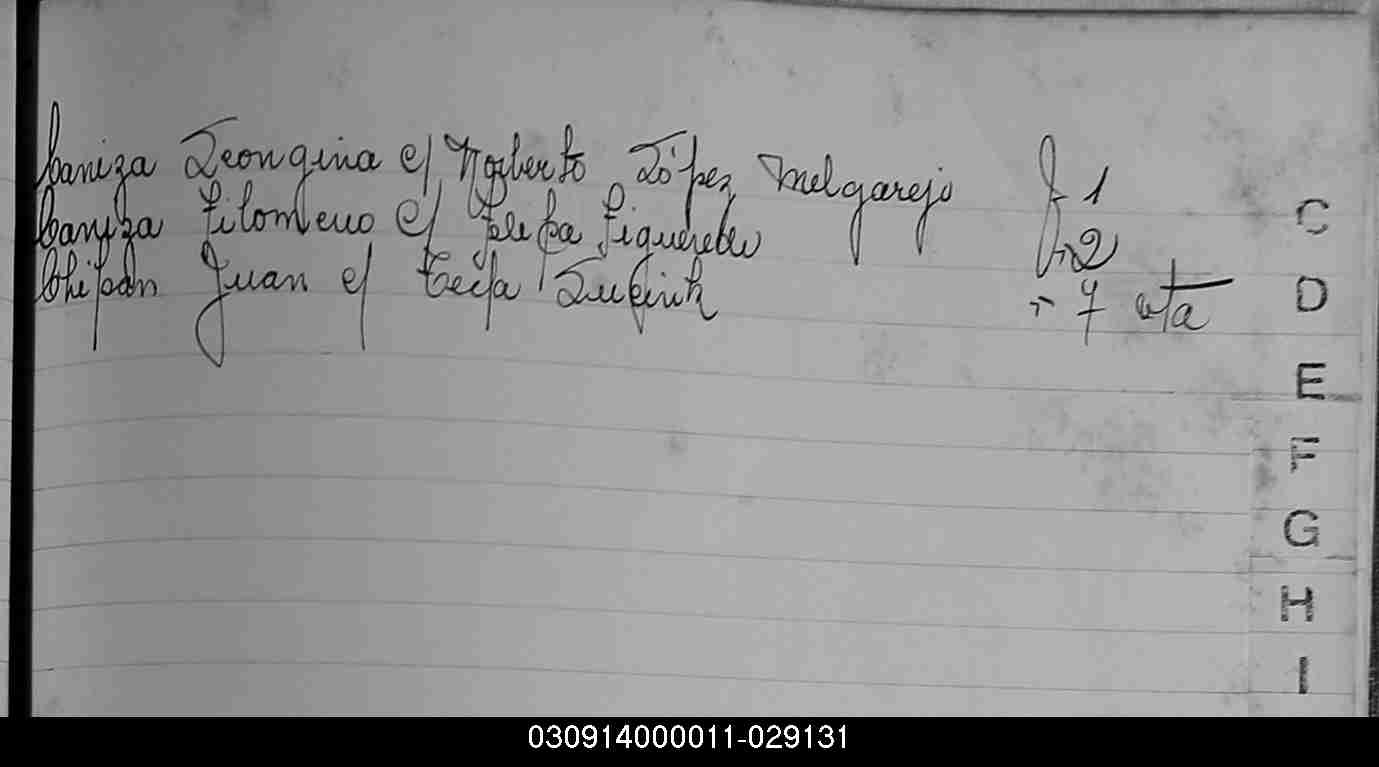 Caniza Leongina c/ Norberto López Melgarejo F 1
Caniza Filomeno c/ Figueredo 2
Chipán Juan c/ Tecla " 7 vta
C
D
E
F
G
H
I
030914000011-029131